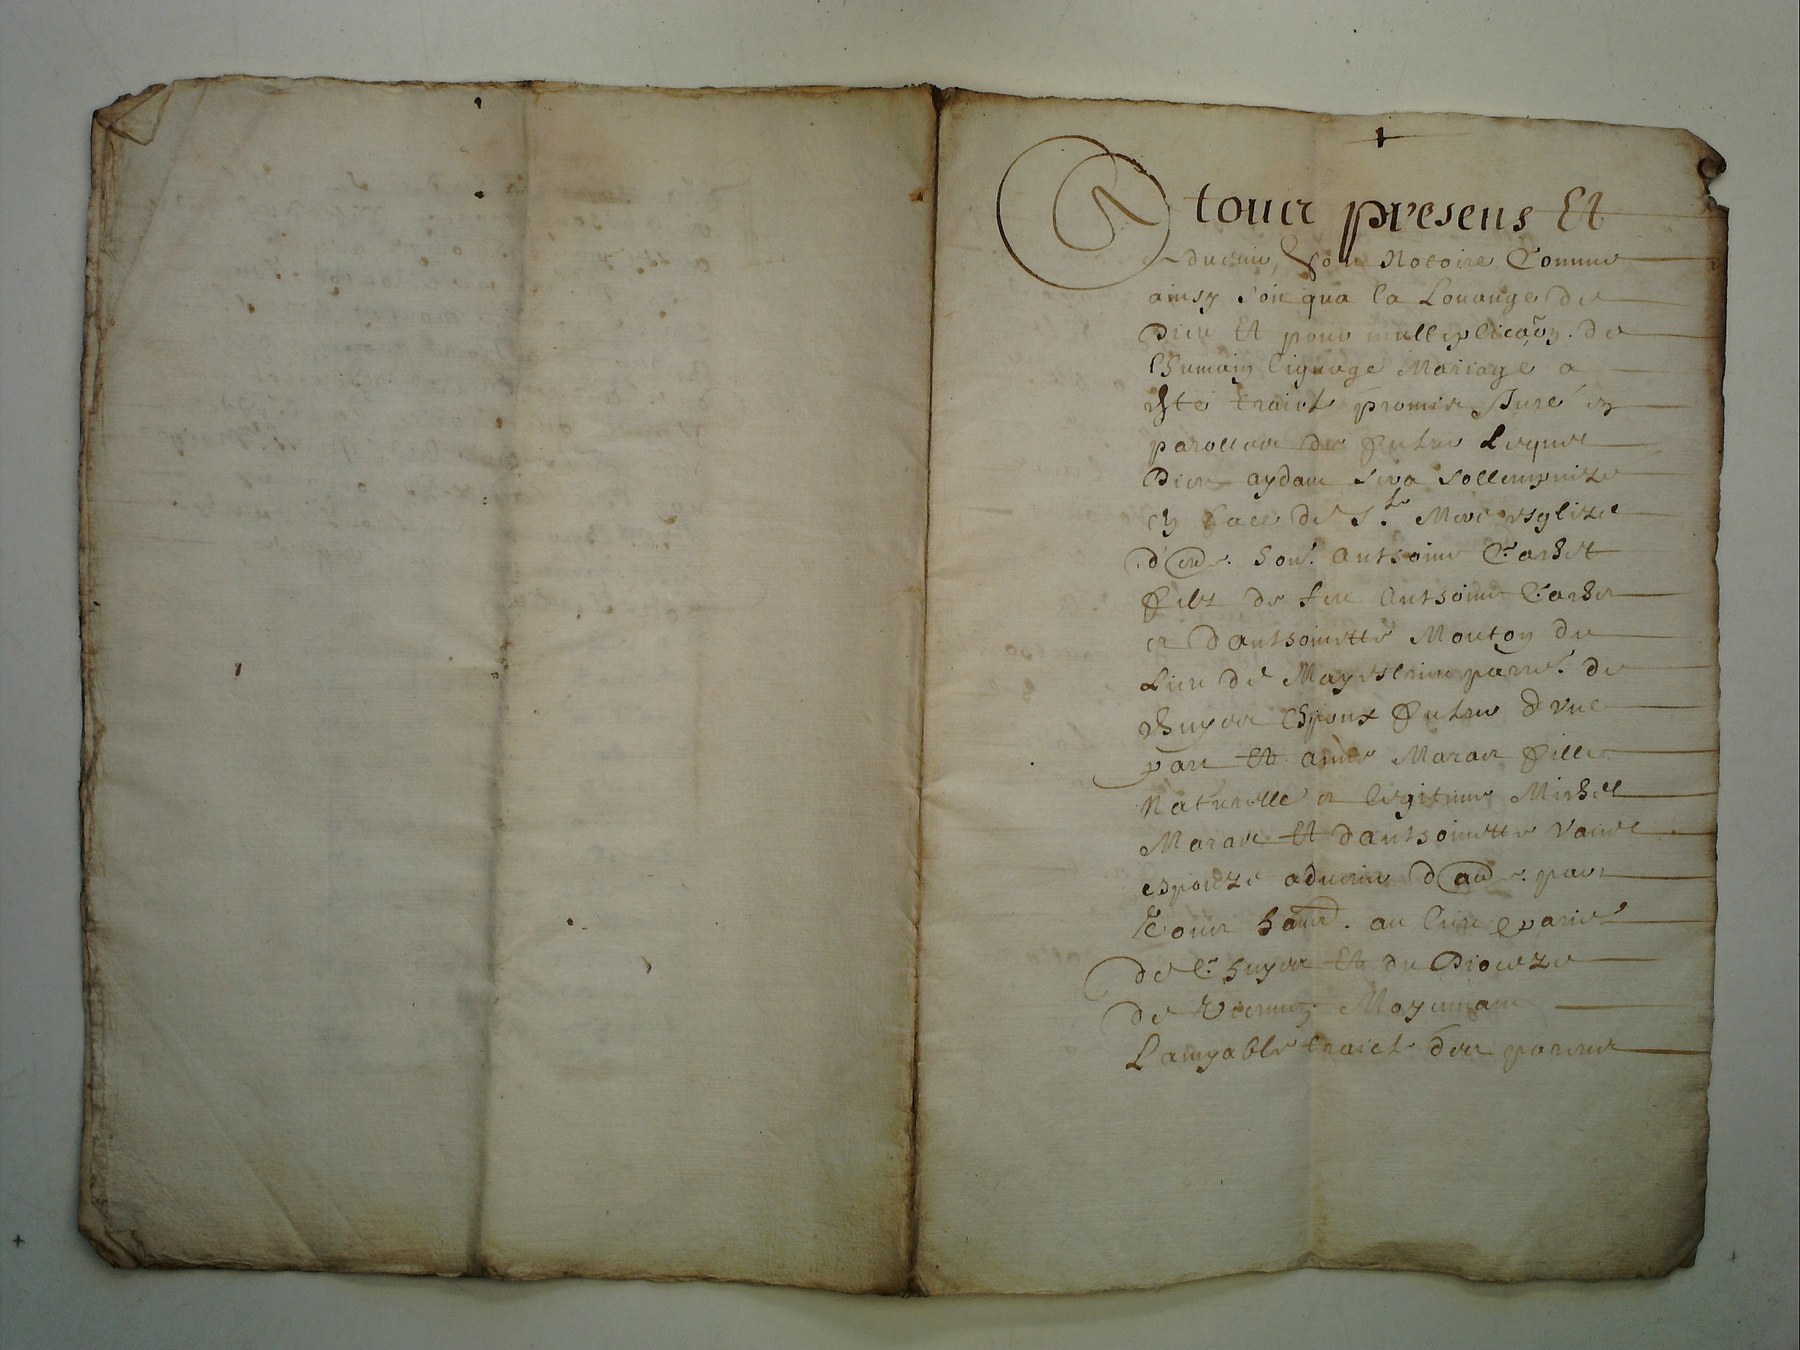 A tous presens Et
aduenir Soit Notoire Comme
ainsy soit qua la Louange de
Dieu Et pour multiplicaõn de
lhumain lignage Mariage a
esté traict promis Juré en
parolles de futur Lequel
Dieu aydant sera sollempnizé
en face de S.te Mere esglize
d'Entre hon. Anthoine Carhet
filz de feu Anthoine Carhet
et D anthoinette Mouton du
Lieu de parr. de
Espoux futur d vne
part Et Marar fille
Naturelle et legitime Michel
Marar Et danthoinette
espouze aduenir d aute. part
Tous habit. au lieu parr.
de Et du Dioceze
de Vienne Moyenant
Lamyable traict des parens